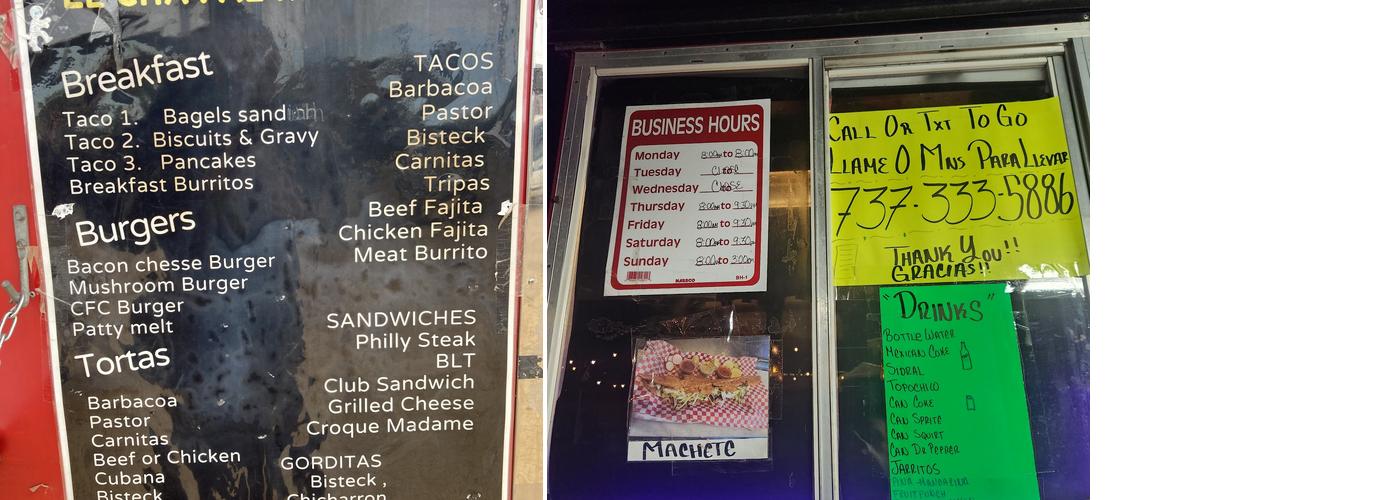 Breakfast
Taco 1. Bagels sandich
Taco 2. Biscuits & Gravy
Taco 3. Pancakes
Breakfast Burritos
Burgers
Bacon chesse Burger
Mushroom Burger
CFC Burger
Patty melt
Tortas
Barbacoa
Pastor
Carnitas
Beef or Chicken
Cubana
Bisteck
TACOS
Barbacoa
Pastor
Bisteck
Carnitas
Tripas
Beef Fajita
Chicken Fajita
Meat Burrito
SANDWICHES
Philly Steak
BLT
Club Sandwich
Grilled Cheese
Croque Madame
GORDITAS
Bisteck ,
Chicharron
BUSINESS HOURS
Monday 8:00am to 8:00pm
Tuesday Close
Wednesday Close
Thursday 8:00am to 9:30pm
Friday 8:00am to 9:30pm
Saturday 8:00am to 9:30pm
Sunday 8:00 to 3:00pm
BH-1
MACHETE
CALL OR TXT TO GO
LLAME O MNS PARA LLEVAR
737-333-5886
THANK YOU!!
GRACIAS!!
"DRINKS"
BOTTLE WATER
MEXICAN COKE
SIDRAL
TOPOCHICO
CAN COKE
CAN SPRITE
CAN SQUIRT
CAN DR PEPPER
JARRITOS
PINA - MANDARINA
FRUIT PUNCH